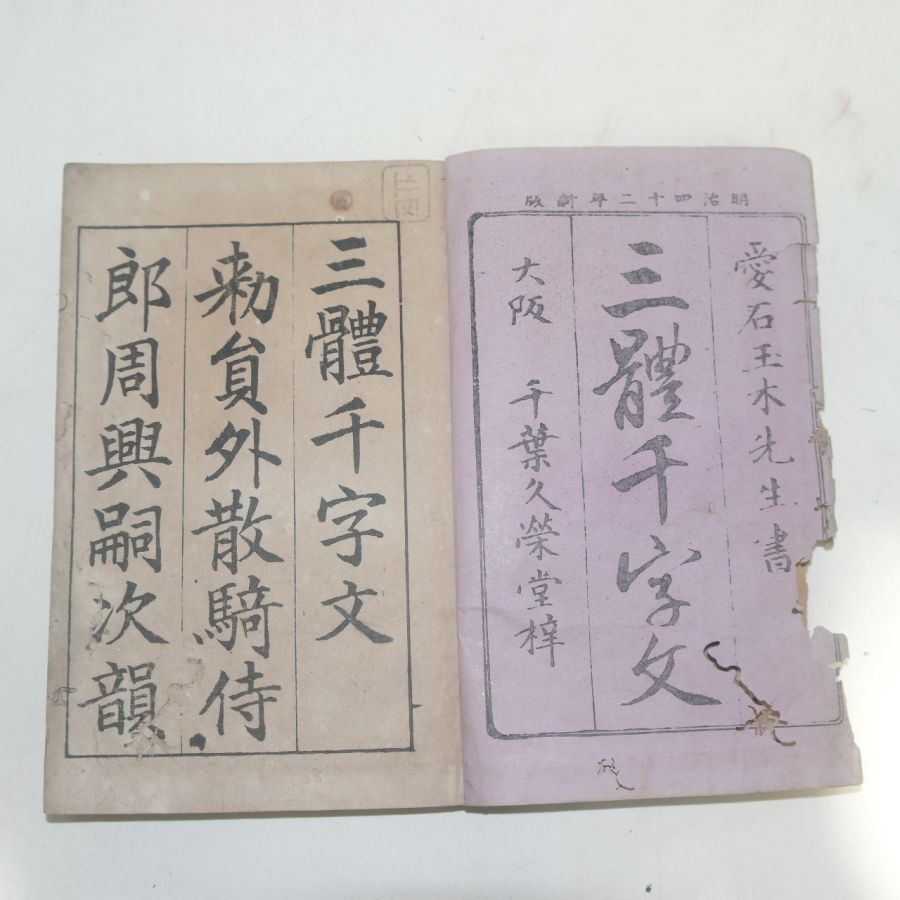 明治四十二年新版
愛石玉木先生書
三體千字文
大阪 千葉久榮堂梓
三體千字文
勅貟外散騎侍
郎周興嗣次韻